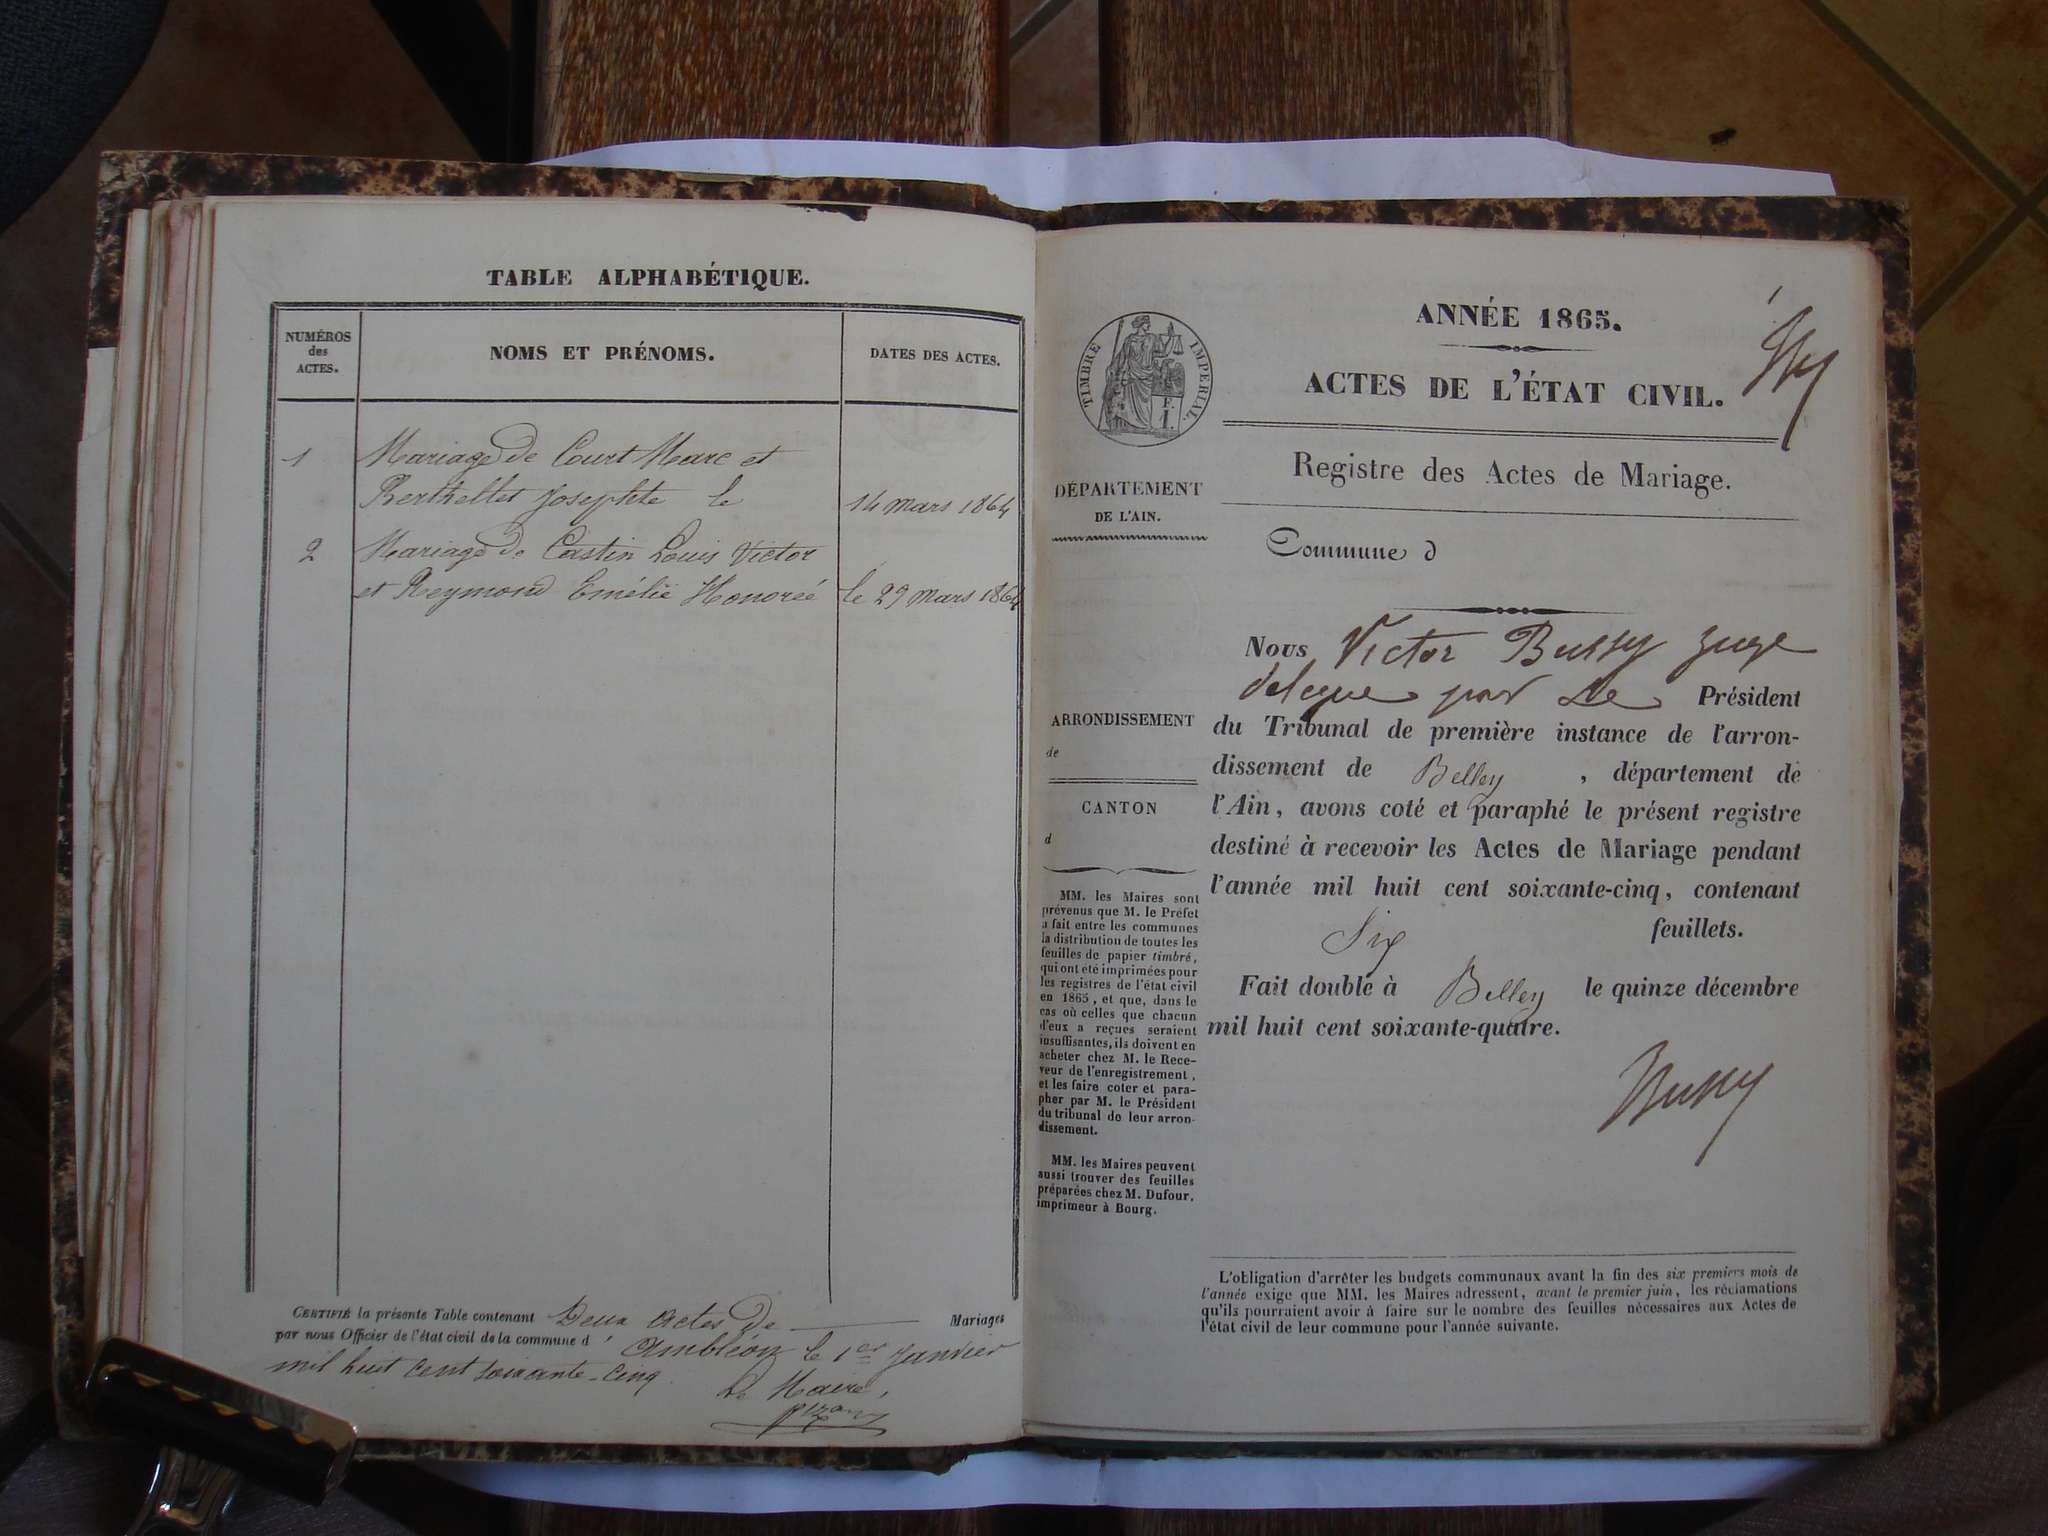 TABLE ALPHABÉTIQUE.
NUMÉROS
des
ACTES.
NOMS ET PRÉNOMS.
DATES DES ACTES.
1 Mariage de Court Marc et
Berthellet Josephte le 14 mars 1864
2 Mariage de Castin Louis Victor
et Reymond Emélie Honorée le 29 mars 1864
CERTIFIÉ la présente Table contenant Deux actes de Mariages
par nous Officier de l'état civil de la commune d' Ambléon le 1er Janvier
mil huit cent soixante-cinq
Le Maire,
ANNÉE 1865.
ACTES DE L'ÉTAT CIVIL.
Registre des Actes de Mariage.
TIMBRE IMPÉRIAL.
DÉPARTEMENT
DE L'AIN.
Commune d
ARRONDISSEMENT
de
CANTON
d
MM. les Maires sont
prévenus que M. le Préfet
a fait entre les communes
la distribution de toutes les
feuilles de papier timbré,
qui ont été imprimées pour
les registres de l'état civil
en 1865, et que, dans le
cas où celles que chacun
d'eux a reçues seraient
insuffisantes, ils doivent en
acheter chez M. le Rece-
veur de l'enregistrement,
et les faire coter et para-
pher par M. le Président
du tribunal de leur arron-
dissement.
MM. les Maires peuvent
aussi trouver des feuilles
préparées chez M. Dufour,
imprimeur à Bourg.
Nous Victor Bussy juge
delegue par Le Président
du Tribunal de première instance de l'arron-
dissement de Belley , département de
l'Ain, avons coté et paraphé le présent registre
destiné à recevoir les Actes de Mariage pendant
l'année mil huit cent soixante-cinq, contenant
Six feuillets.
Fait double à Belley le quinze décembre
mil huit cent soixante-quatre.
Bussy
L'obligation d'arrêter les budgets communaux avant la fin des six premiers mois de
l'année exige que MM. les Maires adressent, avant le premier juin, les réclamations
qu'ils pourraient avoir à faire sur le nombre des feuilles nécessaires aux Actes de
l'état civil de leur commune pour l'année suivante.